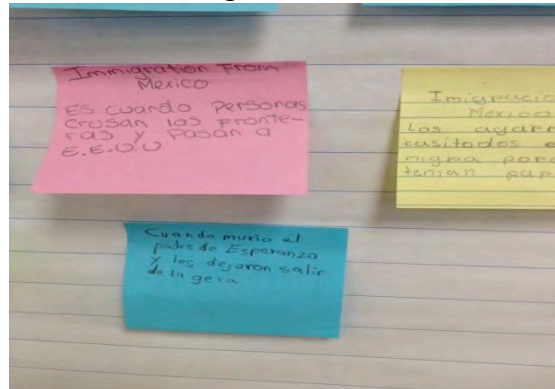 Immigration From
Mexico
ES cuando Personas
crusan las Fronte-
ras y Pasan a
E.E.U.U
Imigracio
Mexico
Los agarr
casi todos e
migra para
tenian pap
Cuando murio el
padre de Esperanza
y les dejaron salir
de la gera